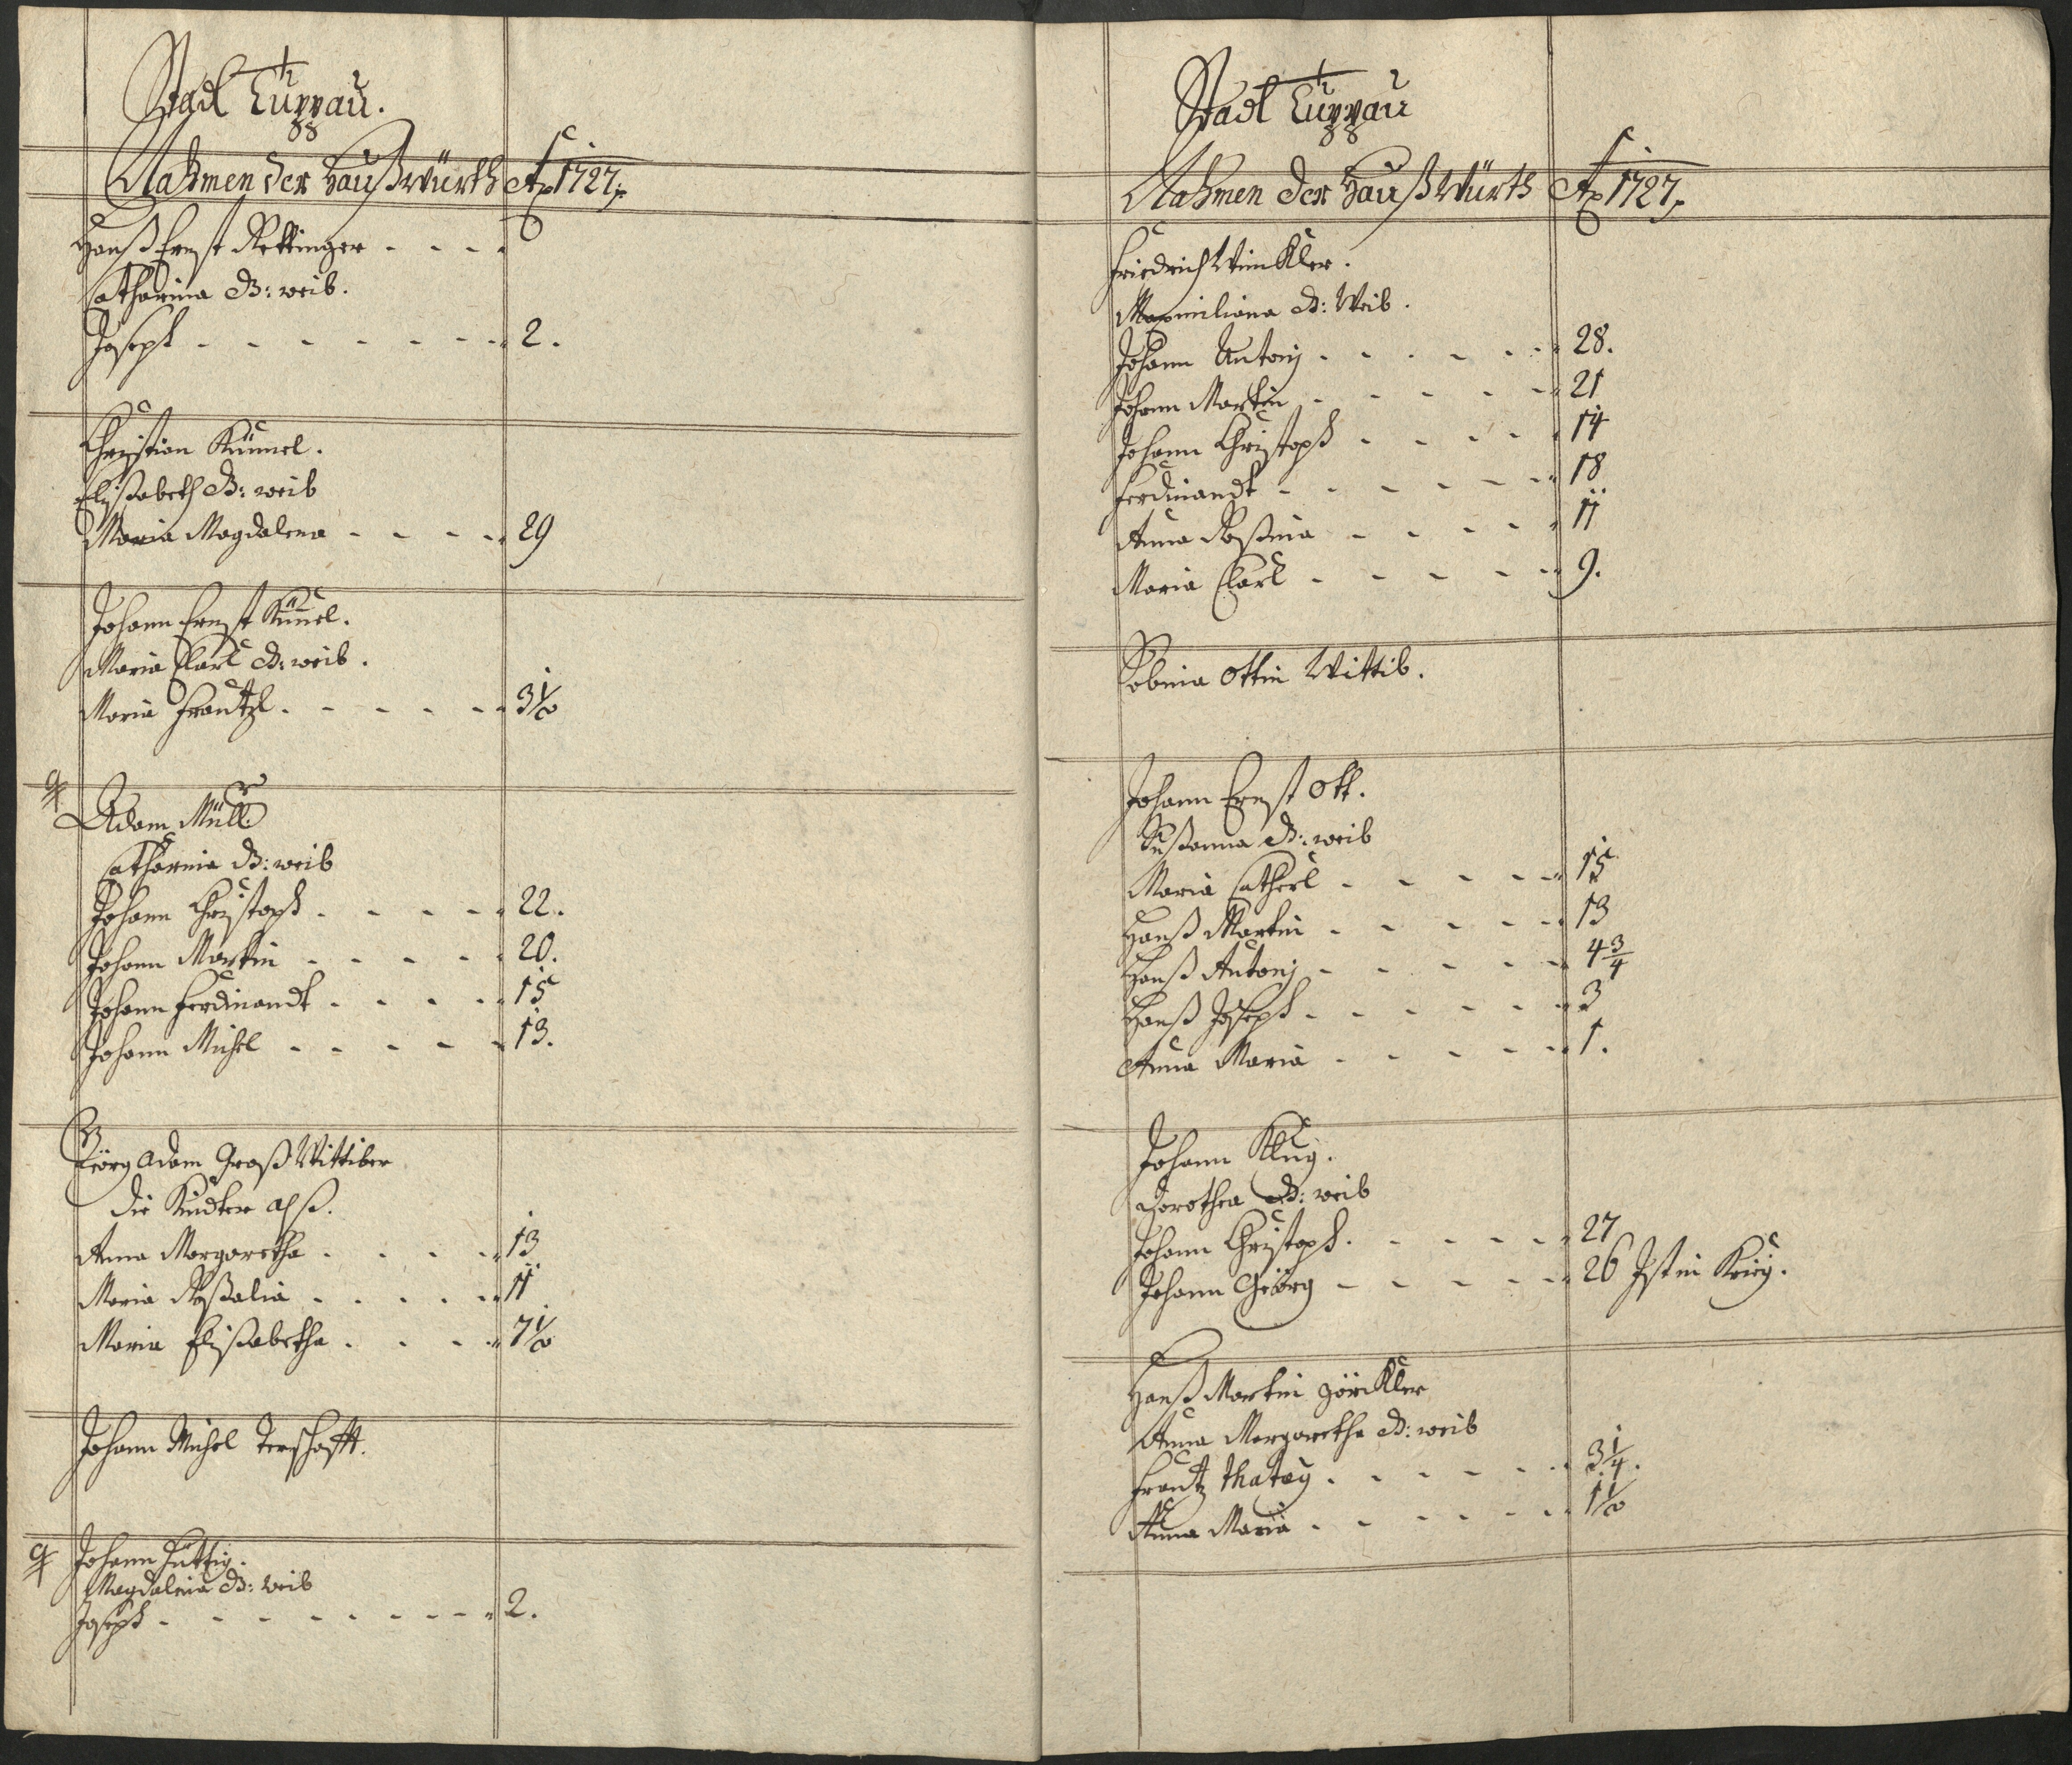 Stadt Luppau.
Nahmen der Haußwürth Ao 1727.
Hanß Ernst Rettinger
Catharina B: weib.
Joseph 2.
Christian Kümel.
Elisabeth B: weib
Maria Magdalena 29
Johann Ernst Kümel.
Maria Clarl B: weib.
Maria Frantzl 3 1/2
Adam Müller
Catharina B: weib
Johann Christoph 22.
Johann Martin 20.
Johann Ferdinandt 15
Johann Michel 13.
Geörg Adam Groß Wittiber
die Kindter alß.
Anna Margaretha 13
Maria Roßalia 11
Maria Elisabetha 7 1/2
Johann Michel
Johann Hüttig.
Magdalena B: weib
Joseph 2.
Stadt Luppau
Nahmen der Haußwürth Ao 1727.
Friedrich Winkler.
Maximiliana B: Weib.
Johann Antonj 28.
Johann Martin 21
Johann Christoph 14
Ferdinandt 18
Anna Roßina 11
Maria Clarl 9.
Sabina Ottin Wittib.
Johann Ernst Ott.
Sußanna B: weib
Maria Catherl 15
Hanß Martin 13
Hanß Antonj 4 3/4
Hanß Joseph 3
Anna Maria 1.
Johann Klug.
Dorothea B: weib
Johann Christoph. 27
Johann Geörg 26 Ist in Krieg.
Hanß Martin
Anna Margaretha B: weib
Frantz 3 1/4.
Anna Maria 1 1/2